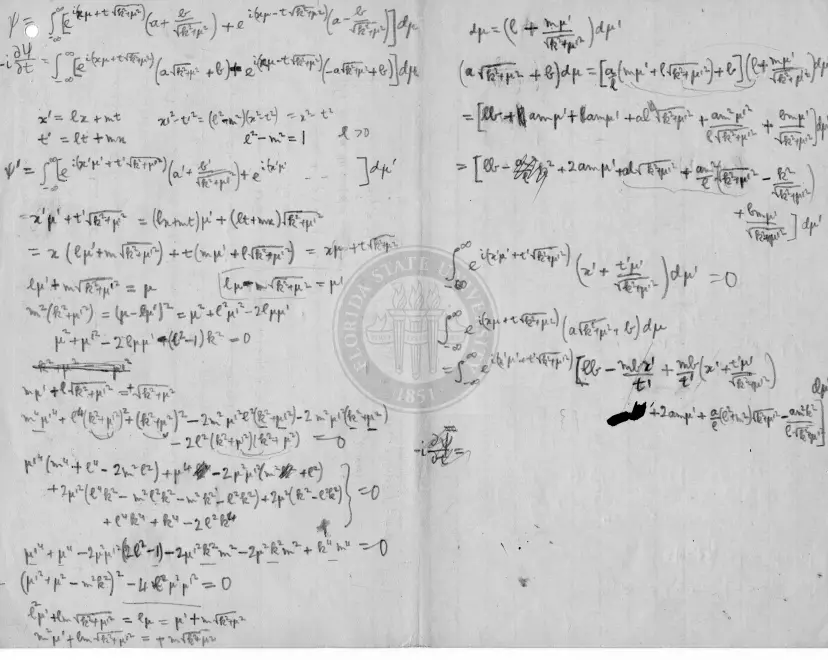 ψ = ∫_{-∞}^{∞} [e^{i(xμ+t√(k²+μ²))} (a + b/√(k²+μ²)) + e^{i(xμ-t√(k²+μ²))} (a - b/√(k²+μ²))] dμ
-i ∂ψ/∂t = ∫_{-∞}^{∞} [e^{i(xμ+t√(k²+μ²))} (a√(k²+μ²) + b) + e^{i(xμ-t√(k²+μ²))} (-a√(k²+μ²) + b)] dμ
x' = lx + mt    x'² - t'² = (l²-m²)(x²-t²) = x² - t²
t' = lt + mx    l² - m² = 1    l > 0
ψ' = ∫_{-∞}^{∞} [e^{i(x'μ'+t'√(k²+μ'²))} (a' + b'/√(k²+μ'²)) + e^{i(x'μ'    ] dμ'
x'μ' + t'√(k²+μ'²) = (lx+mt)μ' + (lt+mx)√(k²+μ'²)
= x(lμ' + m√(k²+μ'²)) + t(mμ' + l√(k²+μ'²)) = xμ + t√(k²+μ²)
lμ' + m√(k²+μ'²) = μ    lμ - m√(k²+μ²) = μ'
m²(k²+μ'²) = (μ - lμ')² = μ² + l²μ'² - 2lμμ'
μ² + μ'² - 2lμμ' - (l²-1)k² = 0
mμ' + l√(k²+μ'²) = √(k²+μ²)
m⁴μ'⁴ + l⁴(k²+μ'²)² + (k²+μ²)² - 2m²μ'²l²(k²+μ'²) - 2m²μ'²(k²+μ²)
- 2l²(k²+μ'²)(k²+μ²) = 0
μ'⁴(m⁴ + l⁴ - 2m²l²) + μ⁴ - 2μ²μ'²(m² + l²)
+ 2μ'²(l⁴k² - m²l²k² - m²k² - l²k²) + 2μ²(k² - l²k²) } = 0
+ l⁴k⁴ + k⁴ - 2l²k⁴
μ'⁴ + μ⁴ - 2μ²μ'²(2l²-1) - 2μ'²k²m² - 2μ²k²m² + k⁴m⁴ = 0
(μ'² + μ² - m²k²)² - 4l²μ²μ'² = 0
l²μ' + lm√(k²+μ'²) = lμ = μ' + m√(k²+μ²)
m²μ' + lm√(k²+μ'²) = + m√(k²+μ²)
dμ = (l + mμ'/√(k²+μ'²)) dμ'
(a√(k²+μ²) + b) dμ = [a/l (mμ' + l√(k²+μ'²)) + b] (l + mμ'/√(k²+μ'²)) dμ'
= [lb + amμ' + amμ' + al√(k²+μ'²) + am²μ'²/(l√(k²+μ'²)) + bmμ'/√(k²+μ'²)] dμ'
= [lb + 2amμ' + al√(k²+μ'²) + am²/l √(k²+μ'²) - k²/√(k²+μ'²)
+ bmμ'/√(k²+μ'²)] dμ'
∫_{-∞}^{∞} e^{i(x'μ'+t'√(k²+μ'²))} (x' + t'μ'/√(k²+μ'²)) dμ' = 0
∫_{-∞}^{∞} e^{i(xμ+t√(k²+μ²))} (a√(k²+μ²) + b) dμ
= ∫_{-∞}^{∞} e^{i(x'μ'+t'√(k²+μ'²))} [lb - mbx'/t' + mb/t' (x' + t'μ'/√(k²+μ'²))
+ 2amμ' + a/l (l²+m²)√(k²+μ'²) - am²k²/(l√(k²+μ'²))] dμ'
-i ∂ψ/∂t =
FLORIDA STATE UNIVERSITY
1851